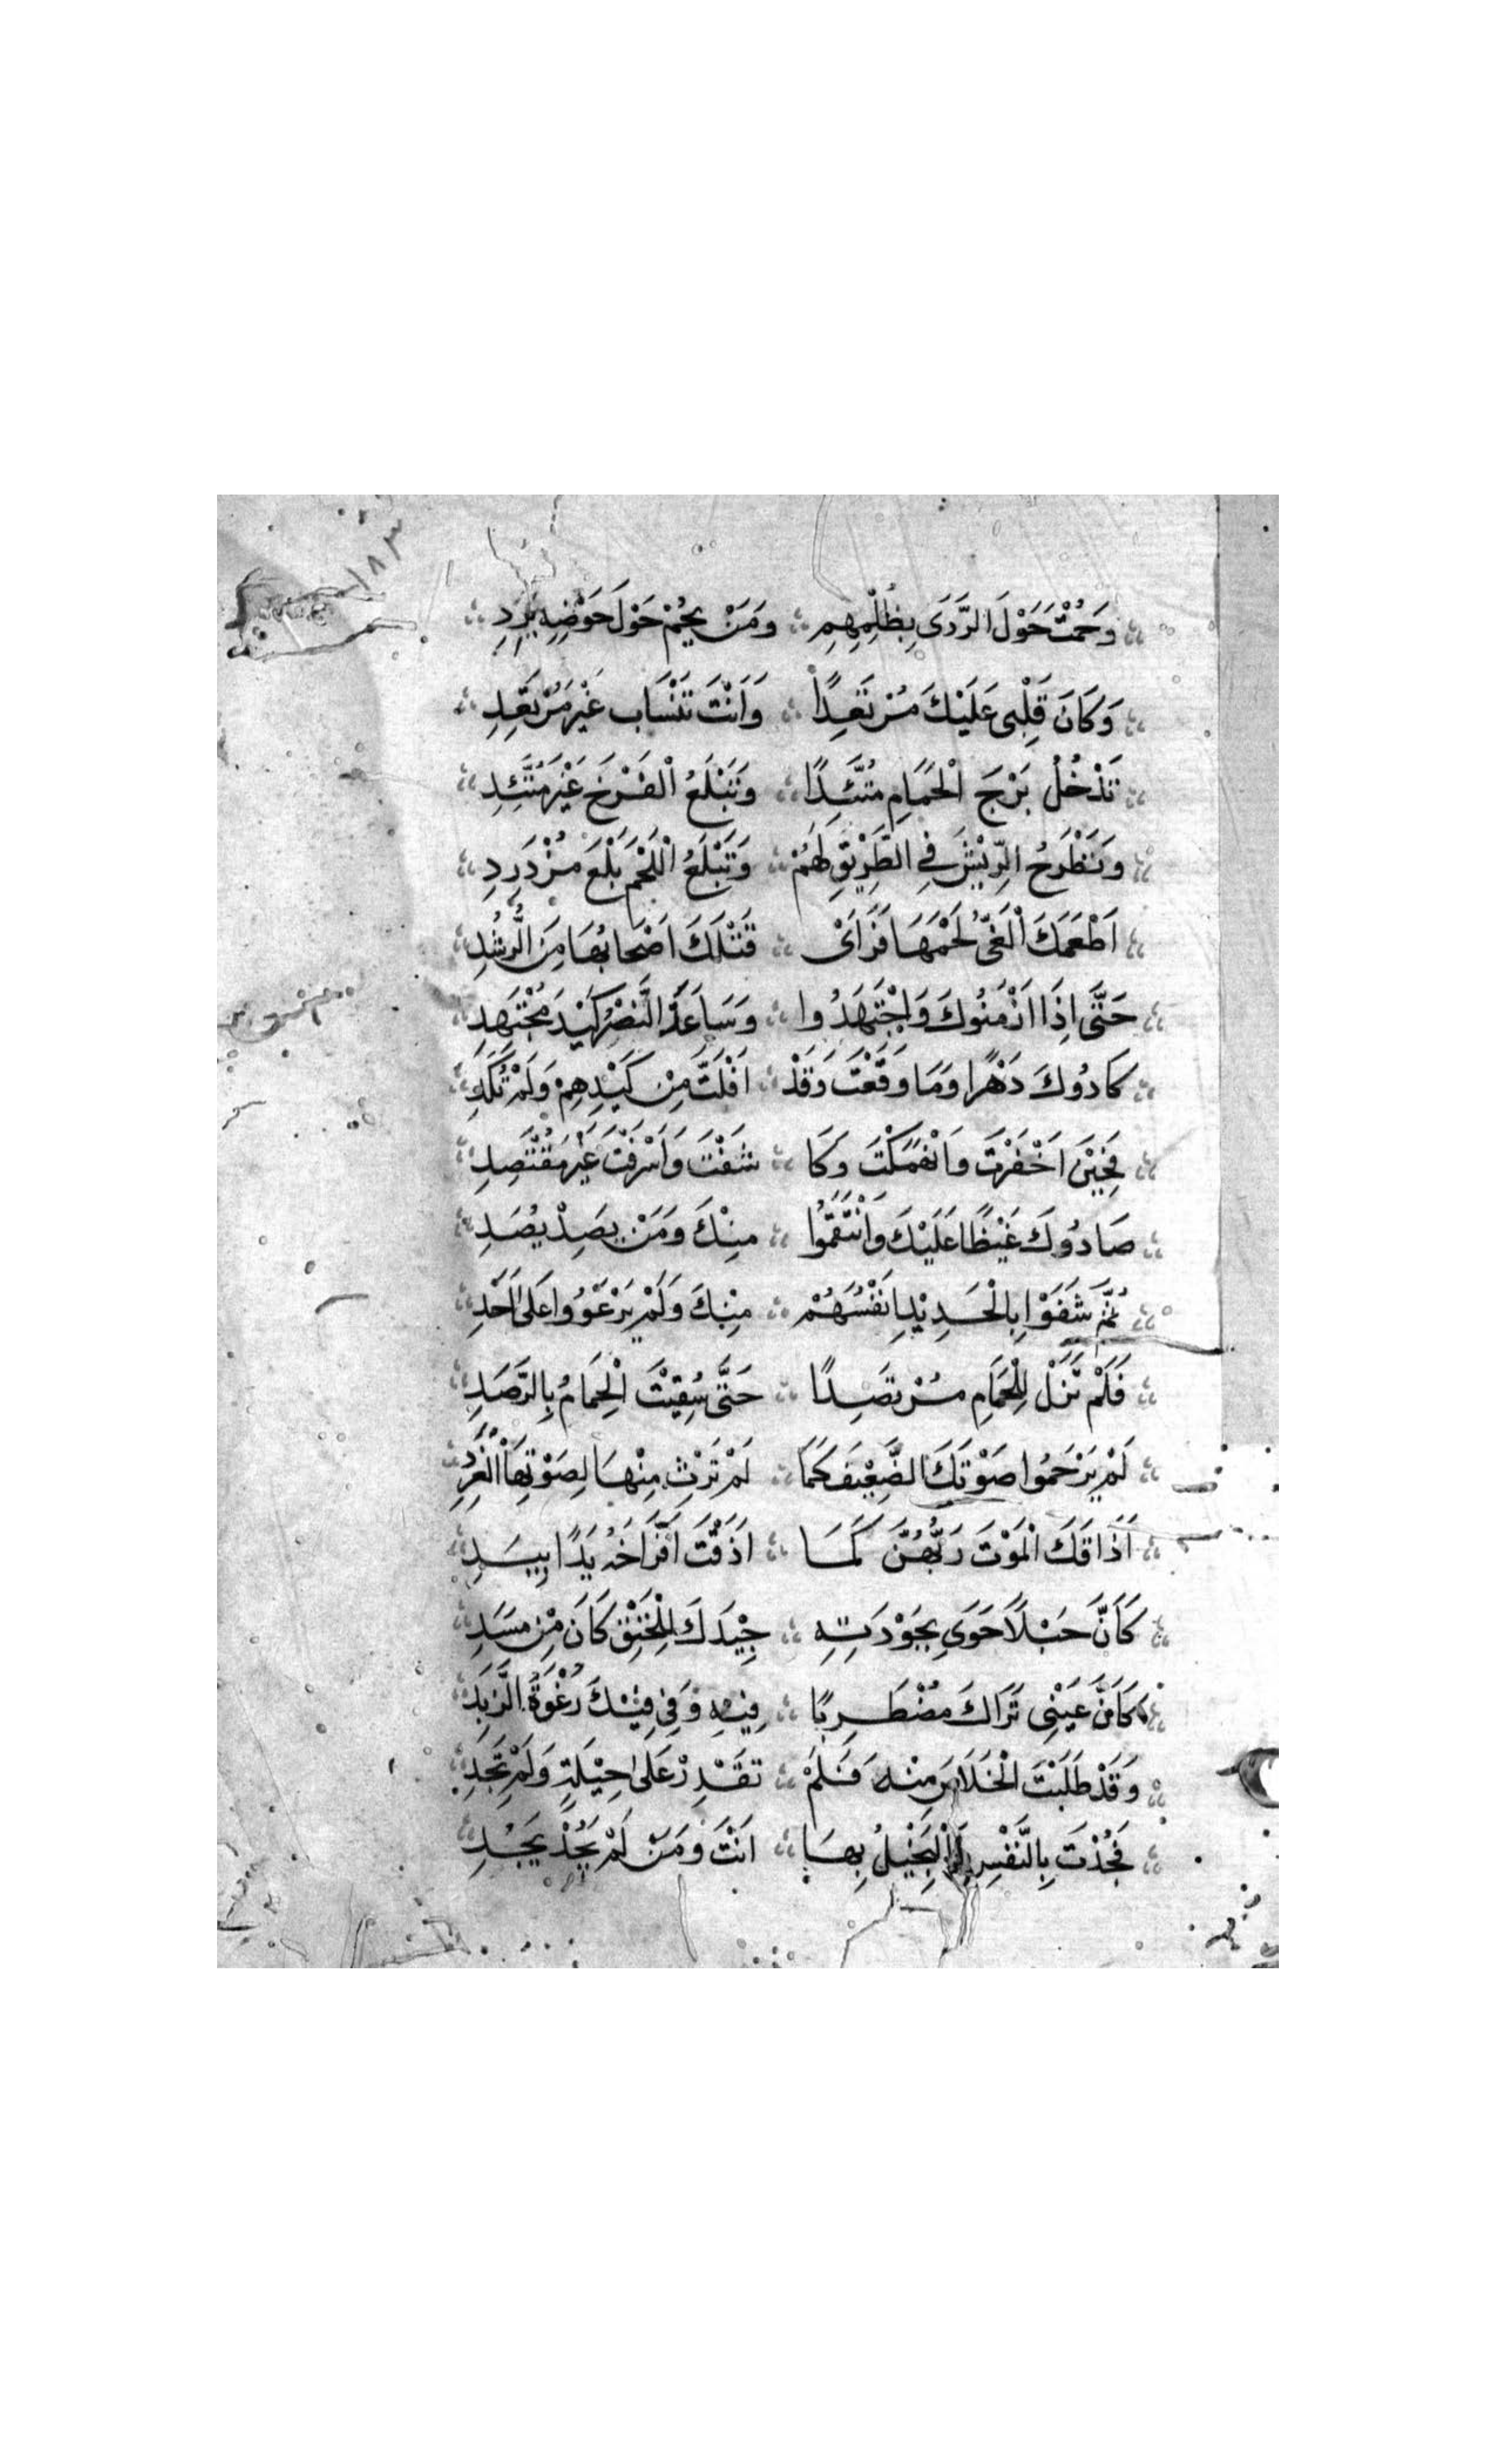 ١٨٣
وَحُمْتَ حَوْلَ الرَّدَى بِظُلْمِهِمِ وَمَنْ يَحُمْ حَوْلَ حَوْضِهِ يَرِدِ
وَكَانَ قَلْبِى عَلَيْكَ مُرْتَعِدًا وَاَنْتَ تَنْسَابُ غَيْرَ مُرْتَعِدِ
تَدْخُلُ بَرْجَ الْحَمَامِ مُتَّئِدًا وَتَبْلَعُ الْفَرْخَ غَيْرَ مُتَّئِدِ
وَتَطْرَحُ الرِّيْشَ فِي الطَّرِيْقِ لَهُمْ وَتَبْلَعُ اللَّحْمَ بَلْعَ مُزْدَرِدِ
اَطْعَمَكَ الْغَىُّ لَحْمَهَا فَرَاَىْ قَتْلَكَ اَصْحَابُهَا مِنَ الرُّشُدِ
حَتَّى اِذَا اَدْمَنُوكَ وَاجْتَهَدُوا وَسَاعَدَ النَّصْرُ كَيْدَ مُجْتَهِدِ
كَادُوكَ دَهْرًا وَمَا وَقَعْتَ وَقَدْ اَفْلَتَّ مِنْ كَيْدِهِمْ وَلَمْ تُكَدِ
فَحِيْنَ اَخْفَرْتَ وَانْهَمَكْتَ وَكَا شَفْتَ وَاَسْرَفْتَ غَيْرَ مُقْتَصِدِ
صَادُوكَ غَيْظًا عَلَيْكَ وَانْتَقَمُوا مِنْكَ وَمَنْ يَصِدْ يُصَدِ
ثُمَّ شَفَوْا بِالْحَدِيْدِ اَنْفُسَهُمْ مِنْكَ وَلَمْ يَرْعَوُوا عَلَى اَحَدِ
فَلَمْ تَزَلْ لِلْحَمَامِ مُرْتَصِدًا حَتَّى سُقِيْتَ الْحِمَامَ بِالرَّصَدِ
لَمْ يَرْحَمُوا صَوْتَكَ الضَّعِيْفَ كَمَا لَمْ تَرْثِ مِنْهَا لِصَوْتِهَا الْغَرِدِ
اَذَاقَكَ الْمَوْتَ رَبُّهُنَّ كَمَا اَذَقْتَ اَفْرَاخَهُ يَدًا بِيَدِ
كَاَنَّ حَبْلًا حَوَى بِجَوْدَتِهِ جِيْدَكَ لِلْخَنْقِ كَانَ مِنْ مَسَدِ
كَاَنَّ عَيْنِى تَرَاكَ مُضْطَرِبًا فِيْهِ وَفِي فِيْكَ رُغْوَةُ الزَّبَدِ
وَقَدْ طَلَبْتَ الْخَلَاصَ مِنْهُ فَلَمْ تَقْدِرْ عَلَى حِيْلَةٍ وَلَمْ تَجِدِ
فَجُدْتَ بِالنَّفْسِ وَالْبَخِيْلُ بِهَا اَنْتَ وَمَنْ لَمْ يَجُدْ يَجُدِ